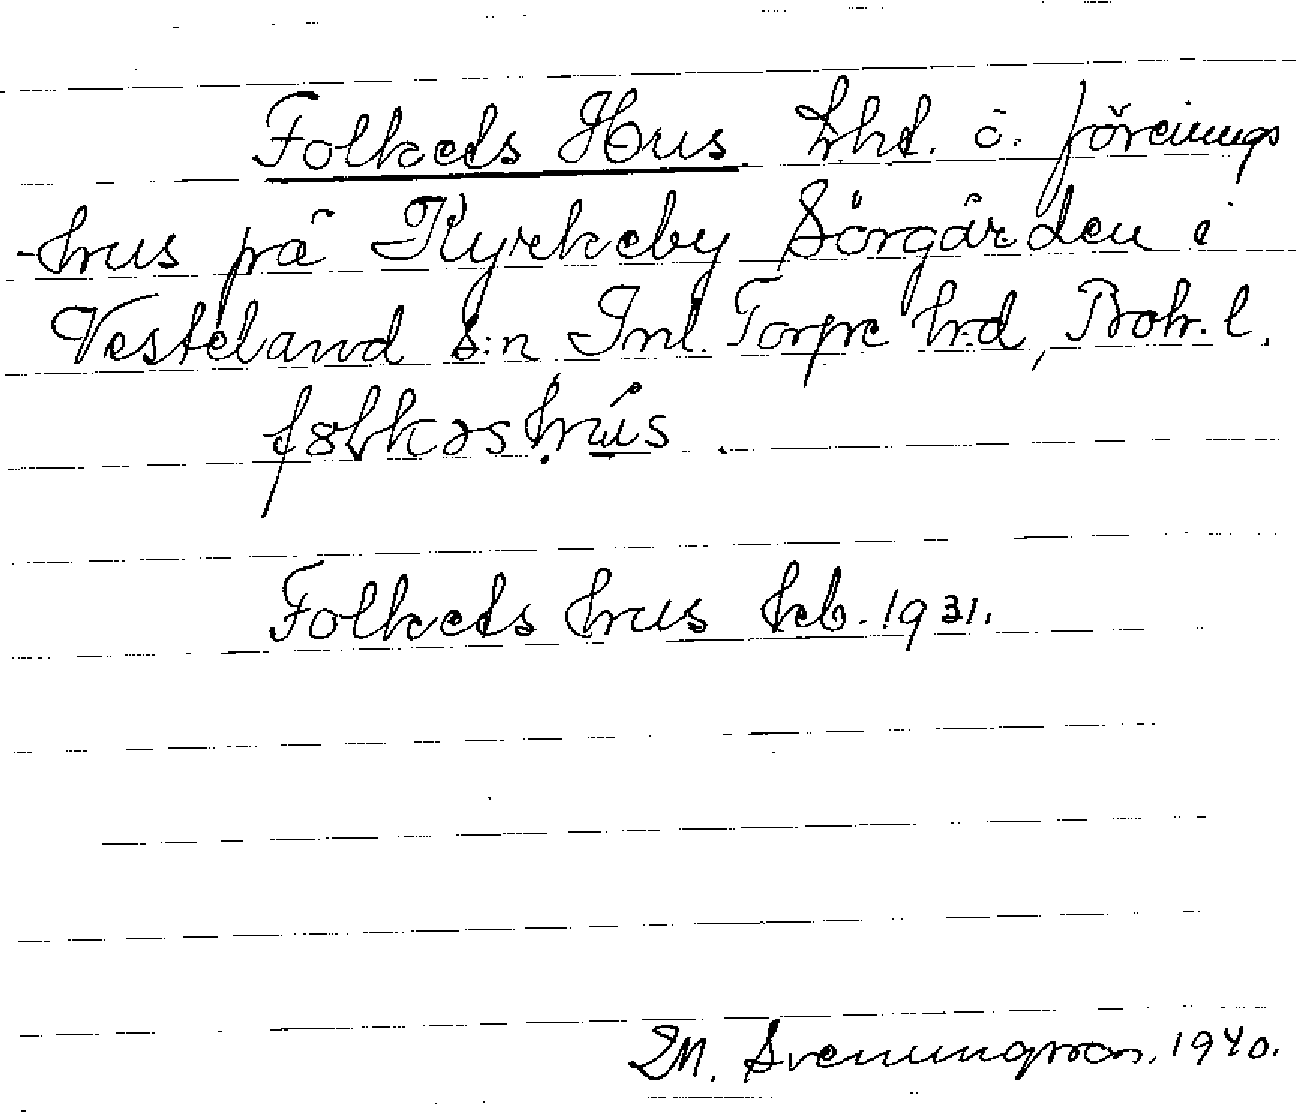 Folkets Hus. Lht. o. förenings
-hus på Kyrkeby Sörgården i
Vesteland s:n Inl. Torpe hd, Boh. l.
fɷlkəshús.
Folkets hus teb. 1931.
M. Svenungsson. 1940.